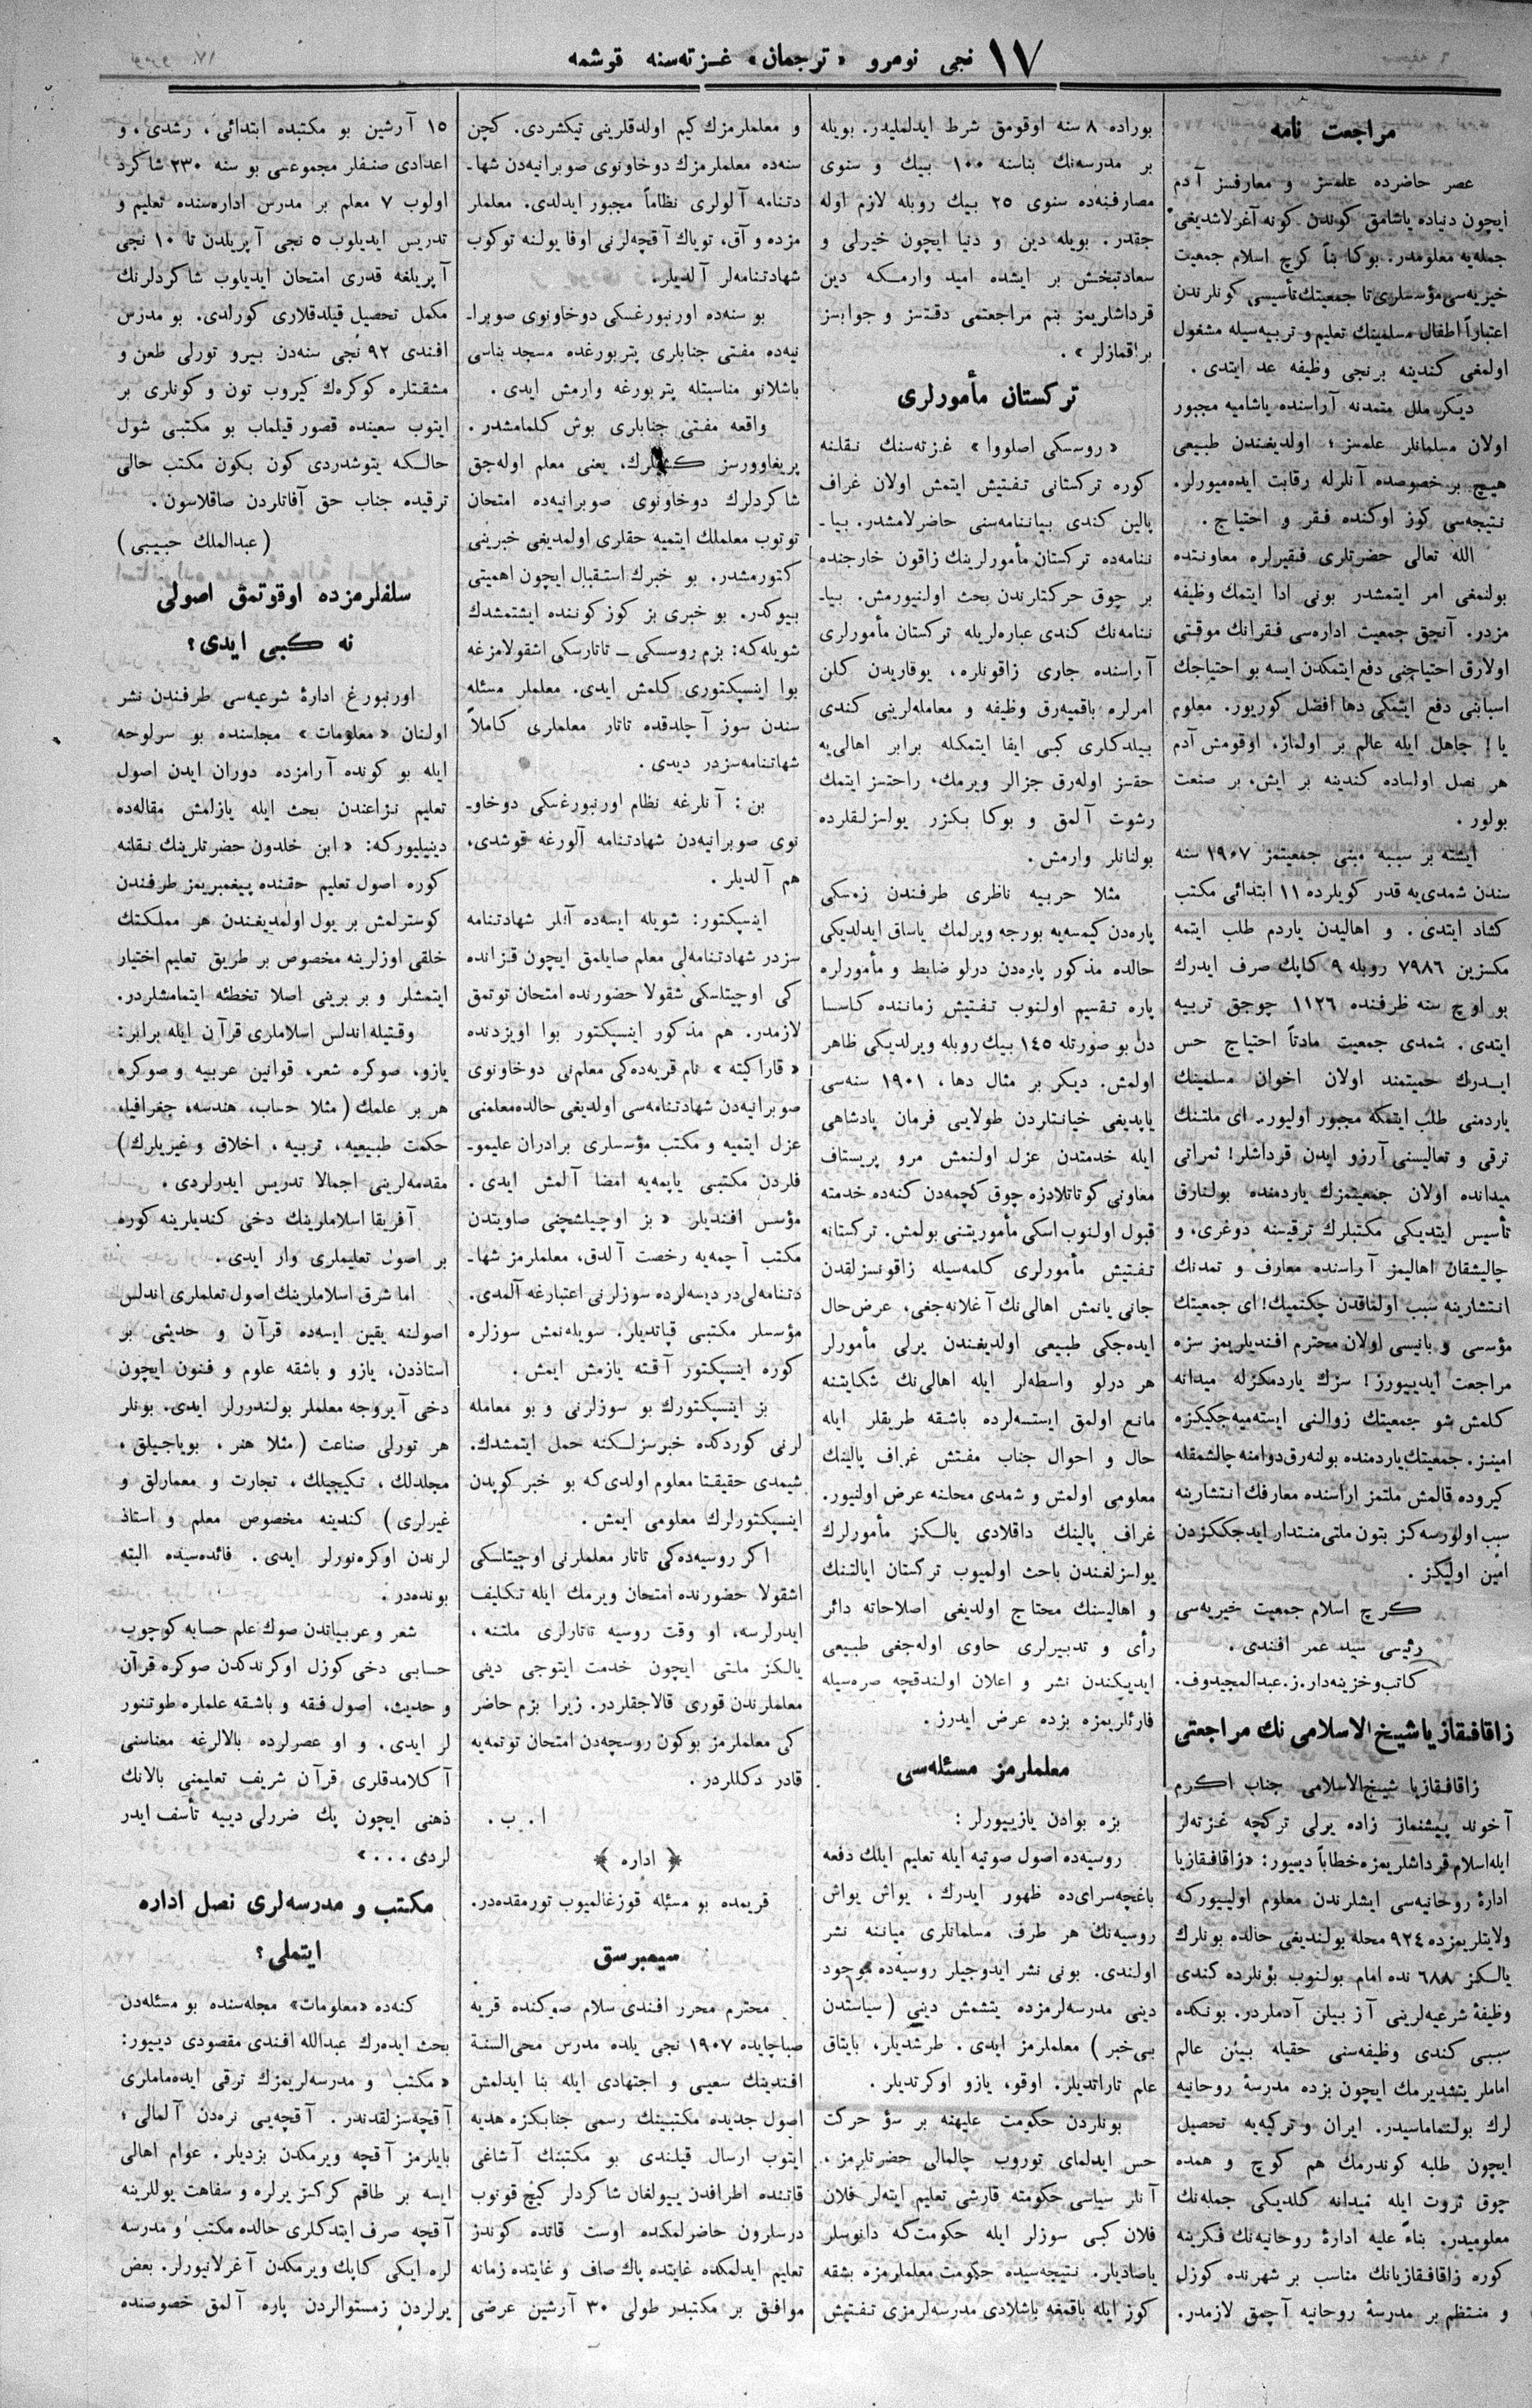 ١٧ نجی نومرو «ترجمان» غـزته‌سنه قوشمه
مراجعت نامه
عصر حاضرده علمسز و معارفسز آدم
ایچون دنیاده یاشامق كوندن كونه آغرلاشدیغی
جمله‌یه معلومدر. بوكا بناً كرچ اسلام جمعیت
خیریه‌سی مؤسسلری تا جمعیتك تأسیسی كونلرندن
اعتباراً اطفال مسلمینك تعلیم و تربیه‌سیله مشغول
اولمغی كندینه برنجی وظیفه عد ایتدی.
دیكر ملل متمدنه آراسنده یاشامیه مجبور
اولان مسلمانلر علمسز؛ اولدیغندن طبیعی
هیچ بر خصوصده آنلرله رقابت ایده‌میورلر.
نتیجه‌سی كوز اوكنده فقر و احتیاج.
الله تعالی حضرتلری فقیرلره معاونتده
بولنمغی امر ایتمشدر بونی ادا ایتمك وظیفه
مزدر. آنجق جمعیت اداره‌سی فقرانك موقتی
اولارق احتیاجنی دفع ایتمكدن ایسه بو احتیاجك
اسبابنی دفع ایتمكی دها افضل كوریور. معلوم
یا! جاهل ایله عالم بر اولماز، اوقومش آدم
هر نصل اولساده كندینه بر ایش، بر صنعت
بولور.
ایشته بر سببه مبنی جمعیتمز ١٩٠٧ سنه
سندن شمدی‌یه قدر كویلرده ١١ ابتدائی مكتب
كشاد ایتدی. و اهالیدن یاردم طلب ایتمه
مكسزین ٧٩٨٦ روبله ٩ كاپك صرف ایدرك
بو اوچ سنه ظرفنده ١١٢٦ چوجق تربیه
ایتدی. شمدی جمعیت مادتاً احتیاج حس
ایدرك حمیتمند اولان اخوان مسلمینك
یاردمنی طلب ایتمكه مجبور اولیور. ای ملتنك
ترقی و تعالیسنی آرزو ایدن قرداشلر! ثمراتی
میدانده اولان جمعیتمزك یاردمنده بولنارق
تأسیس ایتدیكی مكتبلرك ترقیسنه دوغری، و
چالیشقان اهالیمز آراسنده معارف و تمدنك
انتشارینه سبب اولماقدن چكنمیك! ای جمعیتك
مؤسسی و بانیسی اولان محترم افندیلریمز سزه
مراجعت ایدیپورز! سزك یاردمكزله میدانه
كلمش شو جمعیتك زوالنی ایسته‌میه‌جككزه
امینز. جمعیتك یاردمنده بولنه‌رق دوامنه چالشمقله
كیروده قالمش ملتمز اراسنده معارفك انتشارینه
سبب اولورسه‌كز بتون ملتی منتدار ایدجككزدن
امین اولیكز.
كرچ اسلام جمعیت خیریه‌سی
رئیسی سید عمر افندی.
كاتب و خزینه‌دار. ز. عبدالمجیدوف.
زاقافقازیا شیخ الاسلامی نك مراجعتی
زاقافقازیا شیخ‌الاسلامی جناب اكرم
آخوند پیشنماز زاده یرلی تركچه غزته‌لر
ایله اسلام قرداشلریمزه خطاباً دییور: «زاقافقازیا
ادارۀ روحانیه‌سی ایشلرندن معلوم اولییوركه
ولایتلریمزده ٩٢٤ محله بولندیغی حالده بونلرك
یالكز ٦٨٨ نده امام بولنوب بونلرده كندی
وظیفۀ شرعیه‌لرینی آز بیلن آدملردر. بونكده
سببی كندی وظیفه‌سنی حقیله بیلن عالم
اماملر یتشدیرمك ایچون بزده مدرسۀ روحانیه
لرك بولنماماسیدر. ایران و تركیه‌یه تحصیل
ایچون طلبه كوندرمك هم كوچ و همده
چوق ثروت ایله میدانه كلدیكی جمله‌نك
معلومیدر. بناءً علیه ادارۀ روحانیه‌نك فكرینه
كوره زاقافقازیانك مناسب بر شهرنده كوزل
و منتظم بر مدرسۀ روحانیه آچمق لازمدر.
بوراده ٨ سنه اوقومق شرط ایدلملیدر. بویله
بر مدرسه‌نك بناسنه ١٠٠ بیك و سنوی
مصارفنه‌ده سنوی ٢٥ بیك روبله لازم اوله
جقدر. بویله دین و دنیا ایچون خیرلی و
سعادتبخش بر ایشده امید وارمكه دین
قرداشلریمز بنم مراجعتمی دقتسز و جوابسز
براقمازلر».
تركستان مأمورلری
«روسكی اصلووا» غزته‌سنك نقلنه
كوره تركستانی تفتیش ایتمش اولان غراف
پالین كندی بیاننامه‌سنی حاضرلامشدر. بیا-
ننامه‌ده تركستان مأمورلرینك زاقون خارجنده
بر چوق حركتلرندن بحث اولنیورمش. بیا-
ننامه‌نك كندی عباره‌لریله تركستان مأمورلری
آراسنده جاری زاقونلره، یوقاریدن كلن
امرلره باقمیه‌رق وظیفه و معامله‌لرینی كندی
بیلدكلری كبی ایفا ایتمكله برابر اهالی‌یه
حقسز اوله‌رق جزالر ویرمك، راحتسز ایتمك
رشوت آلمق و بوكا بكزر یولسزلقلرده
بولنانلر وارمش.
مثلا حربیه ناظری طرفندن زمسكی
پاره‌دن كیمسه‌یه بورجه ویرلمك یاساق ایدلدیكی
حالده مذكور پاره‌دن درلو ضابط و مأمورلره
پاره تقسیم اولنوب تفتیش زماننده كاسسا
دن بو صورتله ١٤٥ بیك روبله ویرلدیكی ظاهر
اولمش. دیكر بر مثال دها، ١٩٠١ سنه‌سی
یاپدیغی خیانتلردن طولایی فرمان پادشاهی
ایله خدمتدن عزل اولنمش مرو پریستاف
معاونی كوتاتلادزه چوق كچمه‌دن كنه‌ده خدمته
قبول اولنوب اسكی مأموریتنی بولمش. تركستانه
تفتیش مأمورلری كلمه‌سیله زاقونسزلقدن
جانی یانمش اهالی‌نك آغلانه‌جغی، عرض‌حال
ایده‌جكی طبیعی اولدیغندن یرلی مأمورلر
هر درلو واسطه‌لر ایله اهالی‌نك شكایتنه
مانع اولمق ایستسه‌لرده باشقه طریقلر ایله
حال و احوال جناب مفتش غراف پالینك
معلومی اولمش و شمدی محلنه عرض اولنیور.
غراف پالینك داقلادی یالكز مأمورلرك
یولسزلغندن باحث اولمیوب تركستان ایالتنك
و اهالیسنك محتاج اولدیغی اصلاحاته دائر
رأی و تدبیرلری حاوی اوله‌جغی طبیعی
ایدیكندن نشر و اعلان اولندقچه صره‌سیله
قارئلریمزه بزده عرض ایدرز.
معلملرمز مسئله‌سی
بزه بوادن یازییورلر:
روسیه‌ده اصول صوتیه ایله تعلیم ایلك دفعه
باغچه‌سرای‌ده ظهور ایدرك، یواش یواش
روسیه‌نك هر طرف مسلمانلری میاننه نشر
اولندی. بونی نشر ایدوجیلر روسیه‌ده موجود
دینی مدرسه‌لرمزده یتشمش دینی (سیاستدن
بی‌خبر) معلملرمز ایدی. طرشدیلر، بایتاق
علم تاراتدیلر. اوقو، یازو اوكرتدیلر.
بونلردن حكومت علیهنه بر سؤ حركت
حس ایدلمای توروب چالمالی حضرتلرمز،
آنلر سیاسی حكومته قارشی تعلیم ایته‌لر فلان
فلان كبی سوزلر ایله حكومت‌كه دانوسلر
یاصادیلر. نتیجه‌سیده حكومت معلملرمزه بشقه
كوز ایله باقمغه باشلادی مدرسه‌لرمزی تفتیش
و معلملرمزك كیم اولدقلرینی تیكشردی. كچن
سنه‌ده معلملرمزك دوخاونوی صوبرانیه‌دن شها-
دتنامه آلولری نظاماً مجبور ایدلدی. معلملر
مزده و آق، تویاك آقچه‌لرنی اوفا یولنه توكوب
شهادتنامه‌لر آلدیلر.
بو سنه‌ده اورنبورغسكی دوخاونوی صوبرا-
نیه‌ده مفتی جنابلری پتربورغده مسجد بناسی
باشلانو مناسبتله پتربورغه وارمش ایدی.
واقعه مفتی جنابلری بوش كلمامشدر.
پریغاوورسز كشیلرك، یعنی معلم اوله‌جق
شاكردلرك دوخاونوی صوبرانیه‌ده امتحان
توتوب معلملك ایتمیه حقلری اولمدیغی خبرینی
كتورمشدر. بو خبرك استقبال ایچون اهمیتی
بیوكدر. بو خبری بز كوز كوننده ایشتمشدك
شویله‌كه: بزم روسسكی – تاتارسكی اشقولامزغه
بوا اینسپكتوری كلمش ایدی. معلملر مسئله
سندن سوز آچلدقده تاتار معلملری كاملاً
شهاتنامه‌سزدر دیدی.
بن: آنلرغه نظام اورنبورغسكی دوخاو-
نوی صوبرانیه‌دن شهادتنامه آلورغه قوشدی،
هم آلدیلر.
اینسپكتور: شویله ایسه‌ده آنلر شهادتنامه
سزدر شهادتنامه‌لی معلم صایلمق ایچون قزانده
كی اوچیتلسكی شقولا حضورنده امتحان توتمق
لازمدر. هم مذكور اینسپكتور بوا اویزدنده
«قاراكیته» نام قریه‌ده‌كی معلم‌نی دوخاونوی
صوبرانیه‌دن شهادتنامه‌سی اولدیغی حالده معلمنی
عزل ایتمیه و مكتب مؤسسلری برادران علیمو-
فلردن مكتبی یاپمه‌یه امضا آلمش ایدی.
مؤسس افندیلر «بز اوچیلشچنی صاویتدن
مكتب آچمه‌یه رخصت آلدق، معلملرمز شها-
دتنامه‌لی‌در دیسه‌لرده سوزلرنی اعتبارغه آلمدی.
مؤسسلر مكتبی قپاتدیلر. سویله‌نمش سوزلره
كوره اینسپكتور آقته یازمش ایمش.
بز اینسپكتورك بو سوزلرنی و بو معامله
لرنی كوردكده خبرسزلكنه حمل ایتمشدك.
شیمدی حقیقتا معلوم اولدی‌كه بو خبر كوپدن
اینسپكتورلرك معلومی ایمش.
اكر روسیه‌ده‌كی تاتار معلملرنی اوچیتلسكی
اشقولا حضورنده امتحان ویرمك ایله تكلیف
ایدرلرسه، او وقت روسیه تاتارلری ملتنه،
یالكز ملتی ایچون خدمت ایتوجی دینی
معلملرندن قوری قالاجقلردر. زیرا بزم حاضر
كی معلملرمز بوكون روسچه‌دن امتحان توتمه‌یه
قادر دكللردر.
ا. ب.
﴿ اداره ﴾
قریمده بو مسئله قوزغالمیوب تورمقده‌در.
سیمبرسق
محترم محرر افندی سلام صوكنده قریه
صباچایده ١٩٠٧ نجی یلده مدرس محی‌السنة
افندینك سعیی و اجتهادی ایله بنا ایدلمش
اصول جدیده مكتبینك رسمی جنابكزه هدیه
ایتوب ارسال قیلندی بو مكتبنك آشاغی
قاتنده اطرافدن ییولغان شاكردلر كیچ قونوب
درسلرون حاضرلمكده اوست قاتده كوندز
تعلیم ایدلمكده غایتده پاك صاف و غایتده زمانه
موافق بر مكتبدر طولی ٣٠ آرشین عرضی
١٥ آرشین بو مكتبده ابتدائی، رشدی، و
اعدادی صنفلر مجموعسی بو سنه ٢٣٠ شاكرد
اولوب ٧ معلم بر مدرس اداره‌سنده تعلیم و
تدریس ایدیلوب ٥ نجی آپریلدن تا ١٠ نجی
آپریلغه قدری امتحان ایدیلوب شاكردلرنك
مكمل تحصیل قیلدقلاری كورلدی. بو مدرس
افندی ٩٢ نجی سنه‌دن بیرو تورلی طعن و
مشقتلره كوكره‌ك كیروب تون و كونلری بر
ایتوب سعینده قصور قیلماب بو مكتبی شول
حالكه یتوشدردی كون بكون مكتب حالی
ترقیده جناب حق آفاتلردن صاقلاسون.
(عبدالملك حبیبی)
سلفلرمزده اوقوتمق اصولی
نه كبی ایدی؟
اورنبورغ ادارۀ شرعیه‌سی طرفندن نشر
اولنان «معلومات» مجله‌سنده بو سرلوحه
ایله بو كونده آرامزده دوران ایدن اصول
تعلیم نزاعندن بحث ایله یازلمش مقاله‌ده
دینیلیوركه: «ابن خلدون حضرتلرینك نقلنه
كوره اصول تعلیم حقنده پیغمبریمز طرفندن
كوسترلمش بر یول اولمدیغندن هر مملكتك
خلقی اوزلرینه مخصوص بر طریق تعلیم اختیار
ایتمشلر و بر برینی اصلا تخطئه ایتمامشلردر.
وقتیله اندلس اسلاملری قرآن ایله برابر:
یازو، صوكره شعر، قوانین عربیه و صوكره
هر بر علمك (مثلا حساب، هندسه، جغرافیا،
حكمت طبیعیه، تربیه، اخلاق و غیریلرك)
مقدمه‌لرینی اجمالا تدریس ایدرلردی.
آفریقا اسلاملرینك دخی كندیلرینه كوره
بر اصول تعلیملری وار ایدی.
اما شرق اسلاملرینك اصول تعلملری اندلس
اصولنه یقین ایسه‌ده قرآن و حدیثی بر
استاذدن، یازو و باشقه علوم و فنون ایچون
دخی آیروجه معلملر بولندررلر ایدی. بونلر
هر تورلی صناعت (مثلا هنر، بویاجیلق،
مجلدلك، تیكیجیلك، تجارت و معمارلق و
غیرلری) كندینه مخصوص معلم و استاذ
لرندن اوكره‌نورلر ایدی. فائده‌سیده البته
بونده‌در.
شعر و عربیاتدن صوك علم حسابه كوچوب
حسابی دخی كوزل اوكرندكدن صوكره قرآن
و حدیث، اصول فقه و باشقه علملره طوتنور
لر ایدی. و او عصرلرده بالالرغه معناسنی
آكلامدقلری قرآن شریف تعلیمنی بالانك
ذهنی ایچون پك ضررلی دییه تأسف ایدر
لردی...»
مكتب و مدرسه‌لری نصل اداره
ایتملی؟
كنه‌ده «معلومات» مجله‌سنده بو مسئله‌دن
بحث ایده‌رك عبدالله افندی مقصودی دییور:
«مكتب و مدرسه‌لریمزك ترقی ایده‌ماملری
آقچه‌سزلقدندر. آقچه‌یی نره‌دن آلمالی؛
بایلرمز آقچه ویرمكدن بزدیلر. عوام اهالی
ایسه بر طاقم كركسز یرلره و سفاهت یوللرینه
آقچه صرف ایتدكلری حالده مكتب و مدرسه
لره ایكی كاپك ویرمكدن آغرلانیورلر. بعض
یرلردن زمستوالردن پاره آلمق خصوصنده